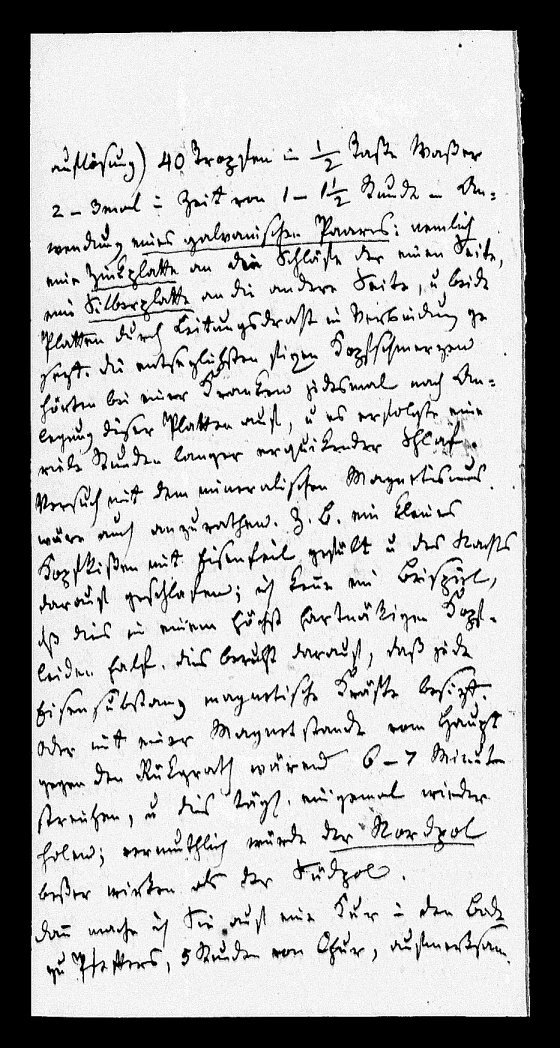 auflösung) 40 Tropfen in 1/2 Taße Waßer
2 – 3mal in Zeit von 1 – 1 1/2 Stunde – An-
wendung eines galvanischen Paares: nemlich
eine Zinkplatte an die Schläfe der einen Seite,
eine Silberplatte an die andere Seite, u beide
Platten durch Leitungsdraht in Verbindung ge
sezt. die entsezlichsten Kopfschmerzen
hörten bei einer Kranken jedesmal nach An-
legung dieser Platten auf, u es erfolgte eine
viele Stunden langer erquikender Schlaf.
Versuch mit dem mineralischen Magnetismus.
wäre auch anzurathen. Z. B. ein kleines
Kopfkißen mit Eisenfeil gefüllt u des Nachts
darauf geschlafen; ich kenne ein Beispiel,
dß dies in einem höchst hartnäkigen Kopf-
leiden half. dies beruht darauf, daß jede
Eisensubstanz magnetische Kräfte besizt.
Oder mit einer Magnetstande vom Haupt
gegen den Rükgrath wärend 6 – 7 Minute
streichen, u dies tägl. einigemal wieder
holen; vermuthlich würde der Nordpol
beßer wirken als der Südpol.
dañ mache ich Sie auf eine Kur in den Bade
zu Pfeffers, 5 Stunden von Chur, aufmerksam.